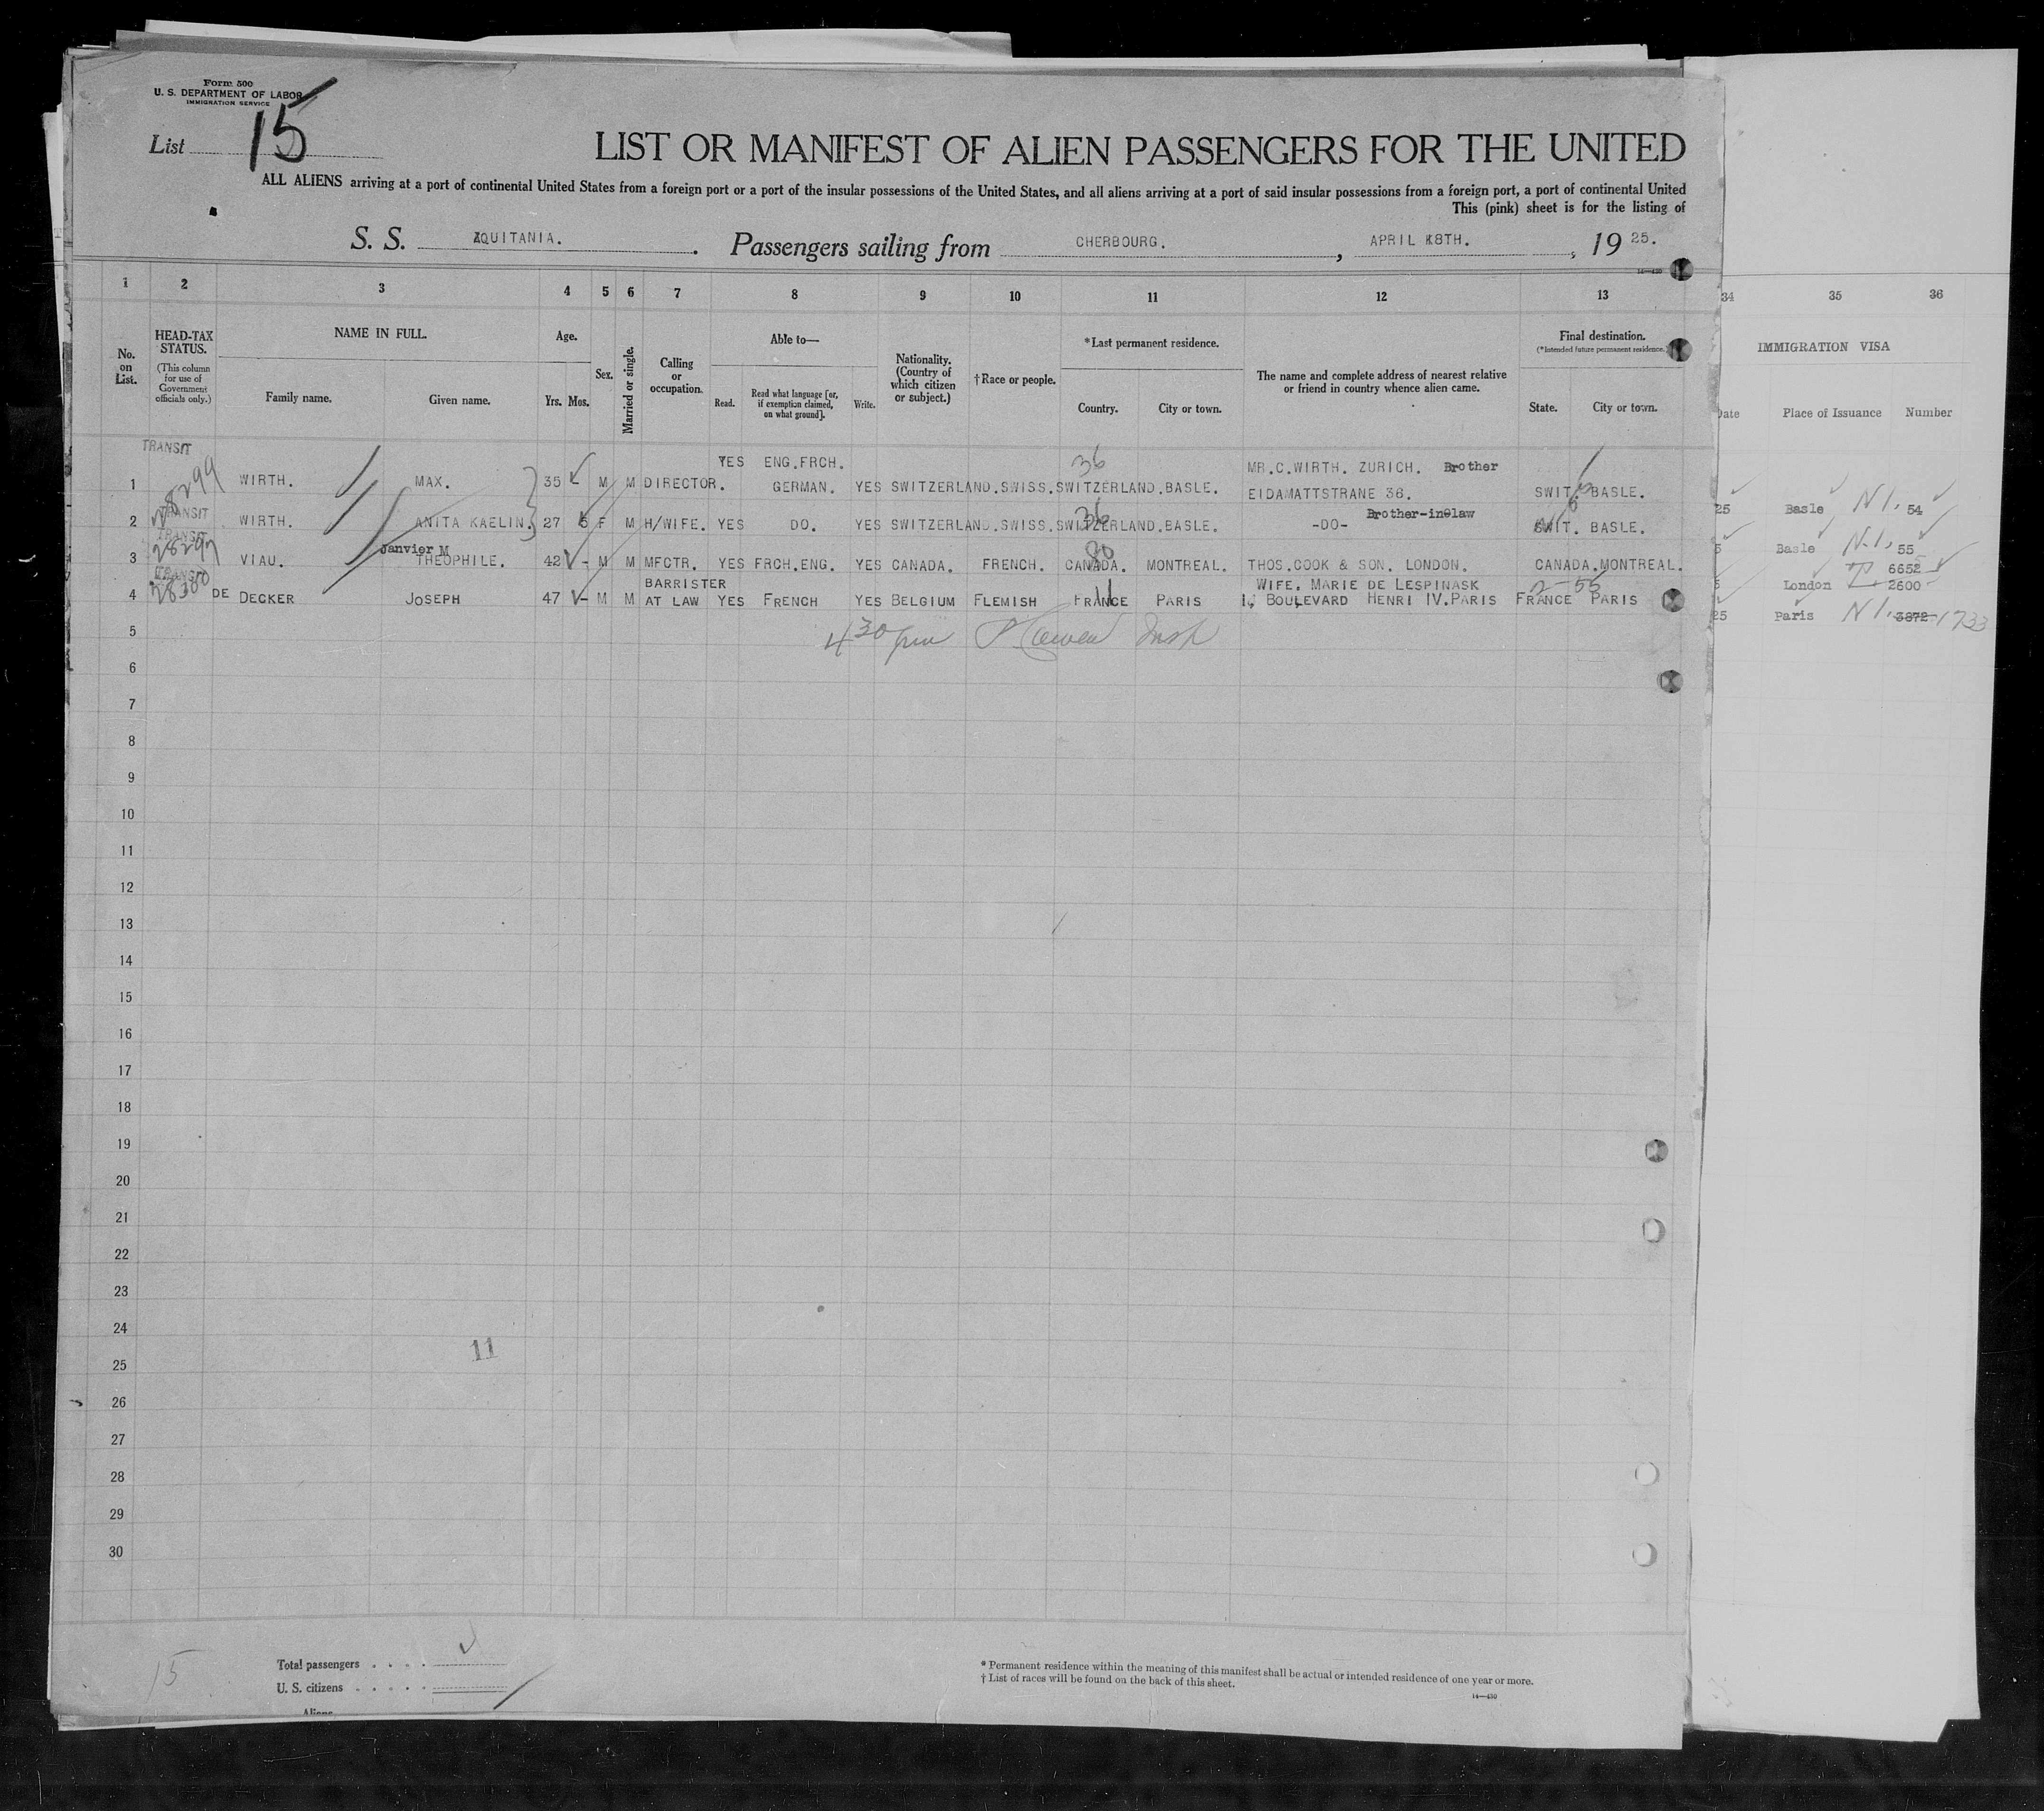 Form 500
U. S. DEPARTMENT OF LABOR
IMMIGRATION SERVICE
List 15
LIST OR MANIFEST OF ALIEN PASSENGERS FOR THE UNITED
ALL ALIENS arriving at a port of continental United States from a foreign port or a port of the insular possessions of the United States, and all aliens arriving at a port of said insular possessions from a foreign port, a port of continental United
This (pink) sheet is for the listing of
S. S. AQUITANIA. Passengers sailing from CHERBOURG, APRIL 18TH. , 19 25.
14—430
1 2 3 4 5 6 7 8 9 10 11 12 13 34 35 36
No. on List.
HEAD-TAX STATUS.
(This column for use of Government officials only.)
NAME IN FULL.
Family name. Given name.
Age.
Yrs. Mos.
Sex.
Married or single.
Calling or occupation.
Able to—
Read. Read what language [or, if exemption claimed, on what ground]. Write.
Nationality. (Country of which citizen or subject.)
†Race or people.
*Last permanent residence.
Country. City or town.
The name and complete address of nearest relative or friend in country whence alien came.
Final destination.
(*Intended future permanent residence.)
State. City or town.
IMMIGRATION VISA
Date Place of Issuance Number
TRANSIT
YES ENG.FRCH. 36 MR.C.WIRTH. ZURICH. Brother
1 28299 WIRTH. MAX. 35 M M DIRECTOR. GERMAN. YES SWITZERLAND.SWISS.SWITZERLAND.BASLE. EIDAMATTSTRANE 36. SWIT. BASLE. 25 Basle N1. 54
TRANSIT 36 Brother-in-law
2 WIRTH. ANITA KAELIN. 27 5 F M H/WIFE. YES DO. YES SWITZERLAND.SWISS.SWITZERLAND.BASLE. -DO- SWIT. BASLE. 5 Basle N-1, 55
TRANSIT
Janvier M 80 6652
3 28297 VIAU. THEOPHILE. 42 - M M MFCTR. YES FRCH.ENG. YES CANADA. FRENCH. CANADA. MONTREAL. THOS.COOK & SON. LONDON. CANADA.MONTREAL. 5 London 2600
TRANSIT
BARRISTER WIFE. MARIE DE LESPINASK 2-55
4 28300 DE DECKER JOSEPH 47 - M M AT LAW YES FRENCH YES BELGIUM FLEMISH FRANCE PARIS 14 BOULEVARD HENRI IV.PARIS FRANCE PARIS 25 Paris N1. 3872 1733
5
4 30 pm Insp
6
7
8
9
10
11
12
13
14
15
16
17
18
19
20
21
22
23
24
11
25
26
27
28
29
30
15
Total passengers . . . .
U. S. citizens . . . . .
Aliens
* Permanent residence within the meaning of this manifest shall be actual or intended residence of one year or more.
† List of races will be found on the back of this sheet.
14—430